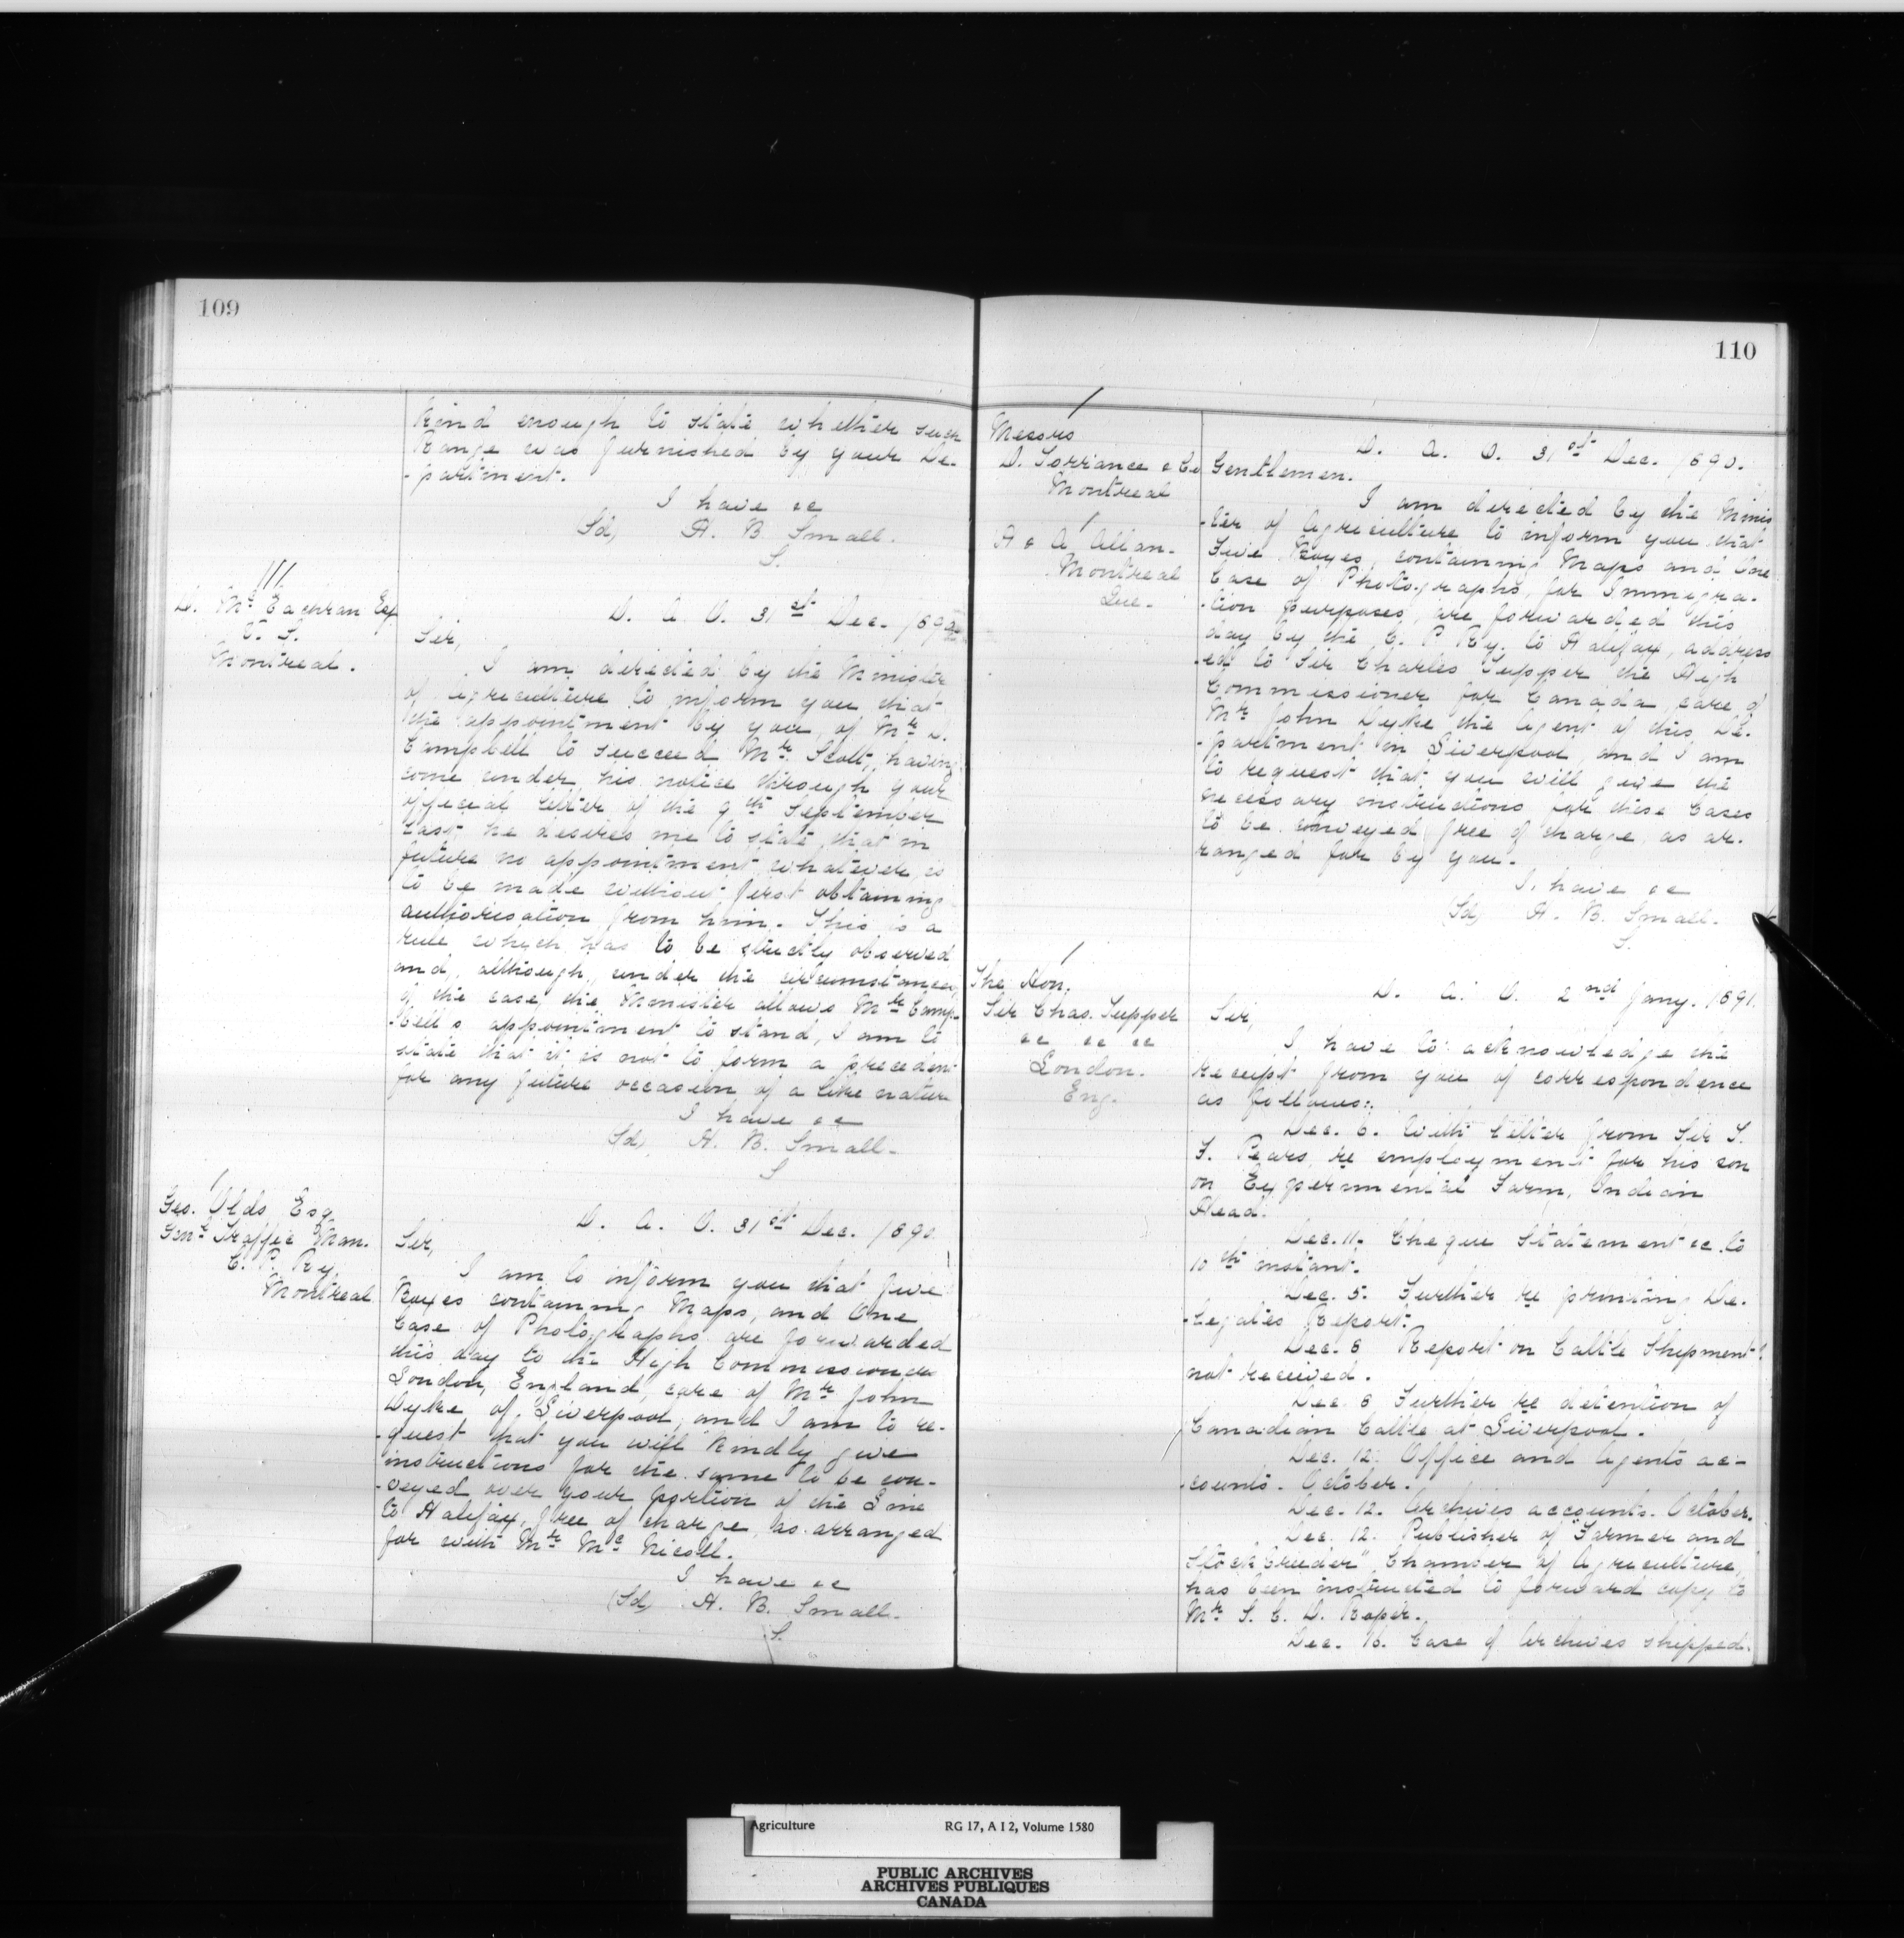 109
Kind enough to state whether such
Range was furnished by your De-
-partment.
I have &c
Sd, H. B. Small.
S.
D. McEachran Esq
V. S.
Montreal.
D. A. O. 31st Dec. 1890
Sir,
I am directed by the Minister
of Agriculture to inform you that
the appointment by you, of Mr D.
Campbell to succeed Mr. Scott, having
come under his notice through your
official letter of the 9th September
last, he desires me to state that in
future no appointment whatever, is
to be made without first obtaining
authorisation from him. This is a
rule which has to be strictly observed
and, although, under the circumstances,
of the case, the Minister allows Mr Camp-
-bell's appointment to stand, I am to
state that it is not to form a precedent
for any future occasion of a like nature
I have &c
(Sd), H. B. Small.
S
Geo. Olds Esq
Genl Traffic Man.
C. P. Ry.
Montreal
D. A. O. 31st Dec. 1890.
Sir,
I am to inform you that five
Boxes containing Maps, and One
Case of Photographs are forwarded
this day to the High Commissioner
London, England, care of Mr John
Dyke of Liverpool, and I am to re-
-quest that you will kindly give
instructions for the same to be con-
-veyed over your portion of the Line
to Halifax, free of charge, as arranged
for with Mr McNicoll.
I have &c
(Sd) H. B. Small.
S.
110
Messrs
D. Torrance & Co
Montreal
H & A Allan.
Montreal
Que.
D. A. O. 31st Dec. 1890.
Gentlemen.
I am directed by the Minis
-ter of Agriculture to inform you that
Five Boxes, containing Maps and One
Case of Photographs, for Immigra-
-tion purposes, are forwarded this
day by the C. P Ry. to Halifax, address
-ed to Sir Charles Tupper the High
Commissioner for Canada, care of
Mr John Dyke the Agent of this De-
-partment in Liverpool, and I am
to request that you will give the
necessary instructions for these Cases
to be conveyed free of charge, as ar-
ranged for by you.
I have &c
(Sd) H. B. Small.
S.
The Hon.
Sir Chas. Tupper
&c &c &c
London.
Eng.
D. A. O. 2nd Jany. 1891.
Sir,
I have to acknowledge the
receipt from you of correspondence
as follows:.
Dec. 6. With letter from Sir T.
F. Pears, re employment for his son
on Experimental Farm, Indian
Head.
Dec. 11. Cheque Statement &c. to
10th instant.
Dec. 5. Further re printing De-
-legates Report.
Dec. 6 Report on Cattle Shipment
not received.
Dec. 6 Further re detention of
Canadian Cattle at Liverpool.
Dec. 12. Office and Agents ac-
-counts. October.
Dec. 12. Archives accounts. October.
Dec. 12. Publisher of "Farmer and
Stockbreeder" Chamber of Agriculture,
has been instructed to forward copy to
Mr S. C. D. Roper.
Dec. 16. Case of Archives shipped.
Agriculture RG 17, A I 2, Volume 1580
PUBLIC ARCHIVES
ARCHIVES PUBLIQUES
CANADA